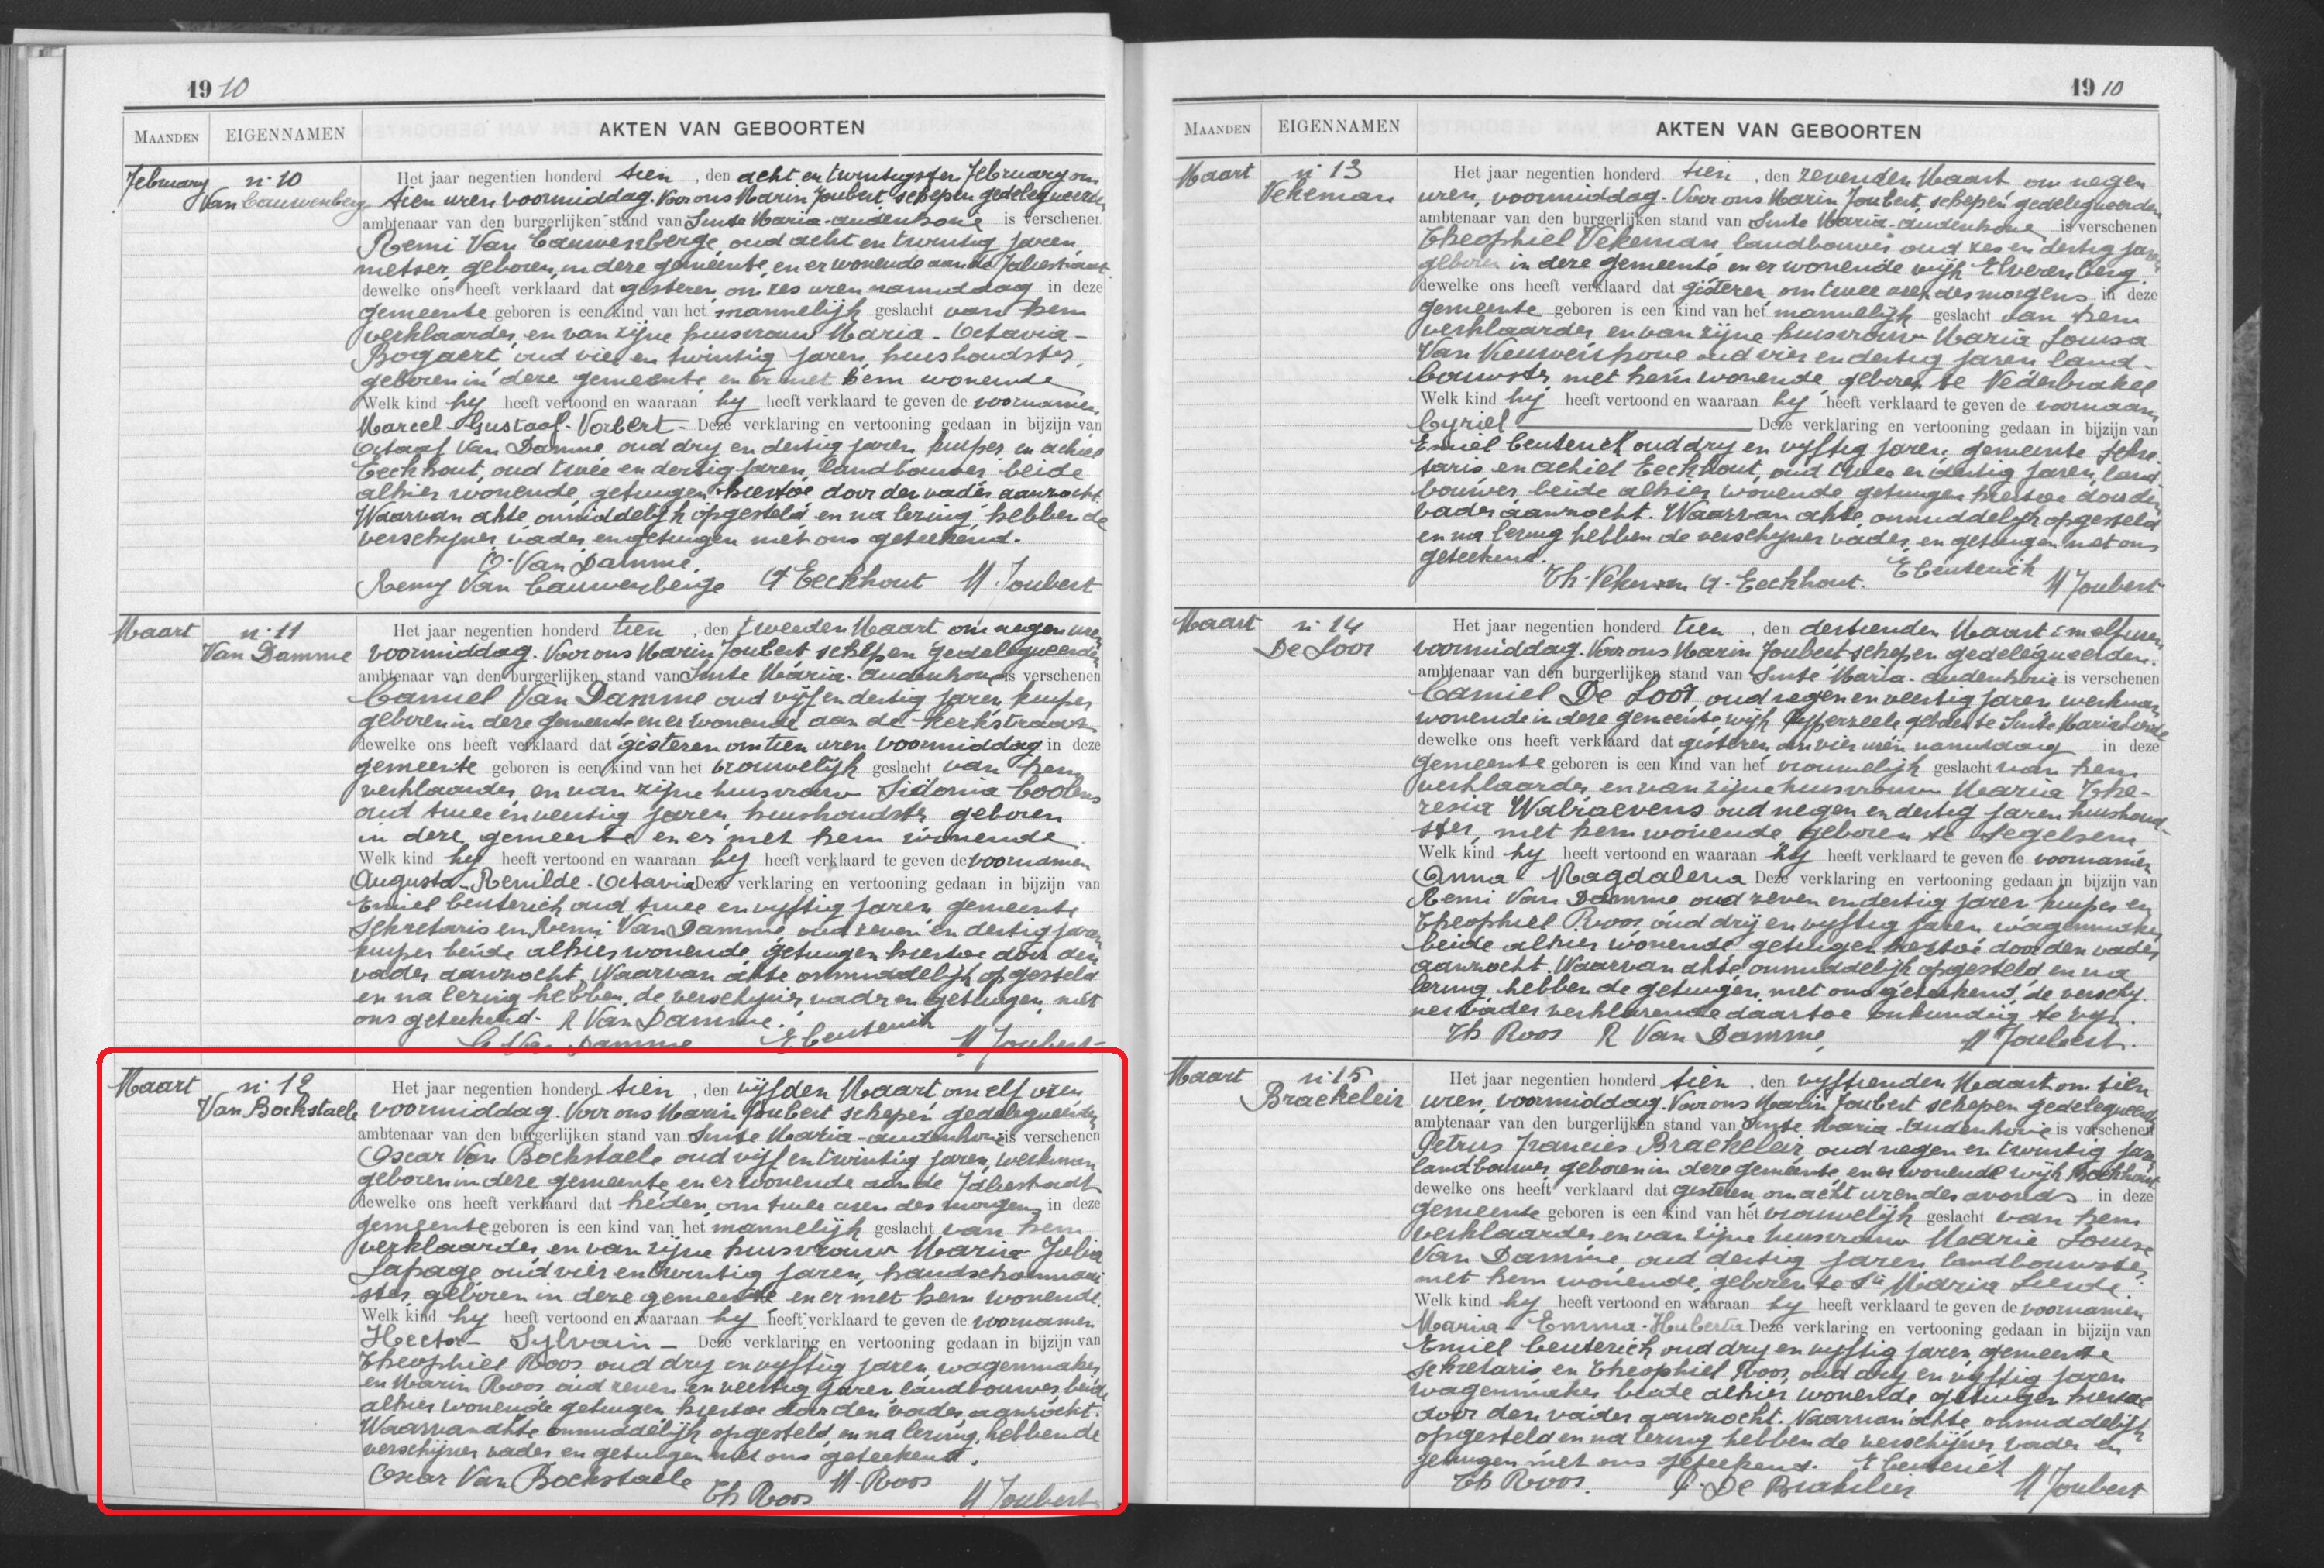 19 10
MAANDEN EIGENNAMEN AKTEN VAN GEBOORTEN
February n: 10 Het jaar negentien honderd tien, den acht en twintigsten February om
Van Cauwenberge tien uren voormiddag. Voor ons Marin Joubert, schepen gedelegueerden
ambtenaar van den burgerlijken stand van Sinte Maria-audenhove is verschenen
Remi Van Cauwenberge, oud acht en twintig jaren,
metser, geboren in deze gemeente, en er wonende aan de
dewelke ons heeft verklaard dat gisteren, om zes uren namiddag in deze
gemeente geboren is een kind van het mannelijk geslacht van hem
verklaarder, en van zijne huisvrouw Maria-Octavia-
Bogaert oud vier en twintig jaren, huishoudster,
geboren in deze gemeente en er met hem wonende
Welk kind hy heeft vertoond en waaraan hy heeft verklaard te geven de voornamen
Marcel-Gustaaf-Norbert- Deze verklaring en vertooning gedaan in bijzijn van
Octaaf Van Damme, oud dry en dertig jaren, kuiper, en achiel
Eeckhout, oud twee en dertig jaren, landbouwer beide
alhier wonende, getuigen hiertoe door den vader aanzocht.
Waarvan akte onmiddelijk opgesteld en na lezing hebben de
verschijner vader en getuigen met ons geteekend.
O. Van Damme.
Remy Van Cauwenberge A Eeckhout M Joubert
Maart n: 11 Het jaar negentien honderd tien, den tweeden Maart om negen uren
Van Damme voormiddag. Voor ons Marin Joubert schepen gedelegueerden
ambtenaar van den burgerlijken stand van Sinte Maria-audenhove is verschenen
Camiel Van Damme oud vijf en dertig jaren, kuiper
geboren in deze gemeente en er wonende aan de Kerkstraat
dewelke ons heeft verklaard dat gisteren om tien uren voormiddag in deze
gemeente geboren is een kind van het vrouwelijk geslacht van hem
verklaarder, en van zijne huisvrouw Sidonia Coolens
oud twee en veertig jaren, huishoudster geboren
in deze gemeente en er met hem wonende
Welk kind hy heeft vertoond en waaraan hy heeft verklaard te geven de voornamen
Augusta-Renilde-Octavia Deze verklaring en vertooning gedaan in bijzijn van
Emiel Ceuterick oud twee en vyftig jaren gemeente
sekretaris en Remi Van Damme oud zeven en dertig jaren
kuiper beide alhier wonende, getuigen hiertoe door den
vader aanzocht. Waarvan akte onmiddelijk opgesteld
en na lezing hebben de verschijner, vader en getuigen met
ons geteekend. R Van Damme.
C Van Damme E Ceuterick M Joubert
Maart n: 12 Het jaar negentien honderd tien, den vijfden Maart om elf uren,
Van Bockstaele voormiddag. Voor ons Marin Joubert schepen gedelegueerden
ambtenaar van den burgerlijken stand van Sinte Maria-audenhove is verschenen
Oscar Van Bockstaele oud vijf en twintig jaren, werkman
geboren in deze gemeente en er wonende aan de
dewelke ons heeft verklaard dat heden, om twee uren des morgens in deze
gemeente geboren is een kind van het mannelijk geslacht van hem
verklaarder, en van zijne huisvrouw Maria-Julia
Lapage oud vier en twintig jaren, handschoenmaak
ster, geboren in deze gemeente en er met hem wonende.
Welk kind hy heeft vertoond en waaraan hy heeft verklaard te geven de voornamen
Hector-Sylvain- Deze verklaring en vertooning gedaan in bijzijn van
Theophiel Roos oud dry en vyftig jaren, wagenmaker,
en Marin Roos, oud zeven en veertig jaren landbouwer, beide
alhier wonende getuigen hiertoe door den vader aanzocht.
Waarvan akte onmiddelijk opgesteld, en na lezing, hebben de
verschijner vader en getuigen met ons geteekend.
Oscar Van Bockstaele Th Roos M. Roos M Joubert
19 10
MAANDEN EIGENNAMEN AKTEN VAN GEBOORTEN
Maart n: 13 Het jaar negentien honderd tien, den zevenden Maart om negen
Vekeman uren, voormiddag. Voor ons Marin Joubert, schepen gedelegueerden
ambtenaar van den burgerlijken stand van Sinte Maria-audenhove is verschenen
Theophiel Vekeman, landbouwer oud zes en dertig jaren
geboren in deze gemeente en er wonende wijk Elverenberg.
dewelke ons heeft verklaard dat gisteren, om twee uren des morgens in deze
gemeente geboren is een kind van het mannelijk geslacht van hem
verklaarder, en van zijne huisvrouw Maria Louisa
Van Nieuwenhove oud vier en dertig jaren land-
bouwster, met hem wonende, geboren te Nederbrakel
Welk kind hij heeft vertoond en waaraan hy heeft verklaard te geven de voornaam
Cyriel Deze verklaring en vertooning gedaan in bijzijn van
Emiel Ceuterick oud dry en vyftig jaren, gemeente sekre
taris en achiel Eeckhout, oud twee en dertig jaren, land-
bouwer, beide alhier wonende, getuigen hiertoe door den
vader aanzocht. Waarvan akte, onmiddelijk opgesteld
en na lezing hebben de verschijner vader, en getuigen met ons
geteekend.
Th. Vekeman A. Eeckhout. E Ceuterick M Joubert
Maart n: 14 Het jaar negentien honderd tien, den dertienden Maart om elf uren
De Loor voormiddag. Voor ons Marin Joubert schepen gedelegueerden.
ambtenaar van den burgerlijken stand van Sinte Maria-audenhove is verschenen
Camiel De Loor, oud negen en veertig jaren werkman
wonende in deze gemeente, wijk geboren te Sinte Maria Lierde
dewelke ons heeft verklaard dat gisteren, om vier uren namiddag in deze
gemeente geboren is een kind van het vrouwelijk geslacht van hem
verklaarder, en van zijne huisvrouw Maria The-
resia Walraevens oud negen en dertig jaren huishoud-
ster, met hem wonende geboren te Segelsem
Welk kind hy heeft vertoond en waaraan hy heeft verklaard te geven de voornamen
Anna-Magdalena Deze verklaring en vertooning gedaan in bijzijn van
Remi Van Damme oud zeven en dertig jaren kuiper en
Theophiel Roos, oud drij en vyftig jaren wagenmaker,
beide alhier wonende getuigen hiertoe door den vader
aanzocht. Waarvan akte, onmiddelijk opgesteld en na
lezing hebben de getuigen, met ons geteekend, de verschij-
ner vader verklarende daartoe onkundig te zijn.
Th Roos R Van Damme, M Joubert.
Maart n: 15 Het jaar negentien honderd tien, den vyftienden Maart om tien
Braekeleir uren, voormiddag. Voor ons Marin Joubert schepen gedelegueerden
ambtenaar van den burgerlijken stand van Sinte Maria-audenhove is verschenen
Petrus Francies Braekeleir, oud negen en twintig jaren
landbouwer, geboren in deze gemeente, en er wonende wijk
dewelke ons heeft verklaard dat gisteren, om acht uren des avonds in deze
gemeente geboren is een kind van het vrouwelijk geslacht van hem
verklaarder en van zijne huisvrouw Marie Louise
Van Damme, oud dertig jaren, landbouwster,
met hem wonende, geboren te Ste Maria Lierde.
Welk kind hy heeft vertoond en waaraan hy heeft verklaard te geven de voornamen
Maria-Emma-Huberta Deze verklaring en vertooning gedaan in bijzijn van
Emiel Ceuterick oud dry en vyftig jaren, gemeente
sekretaris, en Theophiel Roos, oud dry en vyftig jaren
wagenmaker, beide alhier wonende getuigen hiertoe
door den vader aanzocht. Waarvan akte onmiddelijk
opgesteld en na lezing hebben de verschijner vader en
getuigen met ons geteekend. E Ceuterick
Th Roos. P. De Brakelier M Joubert